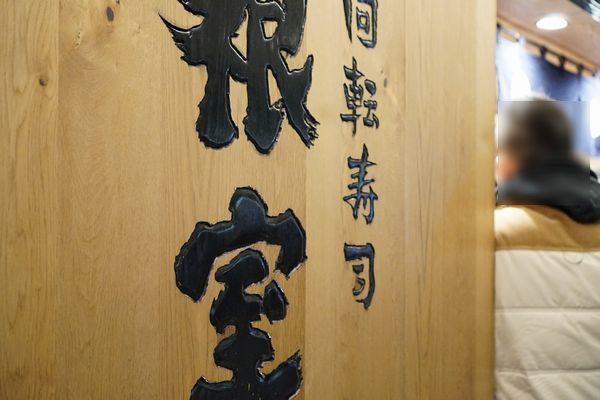 回転寿司
根室